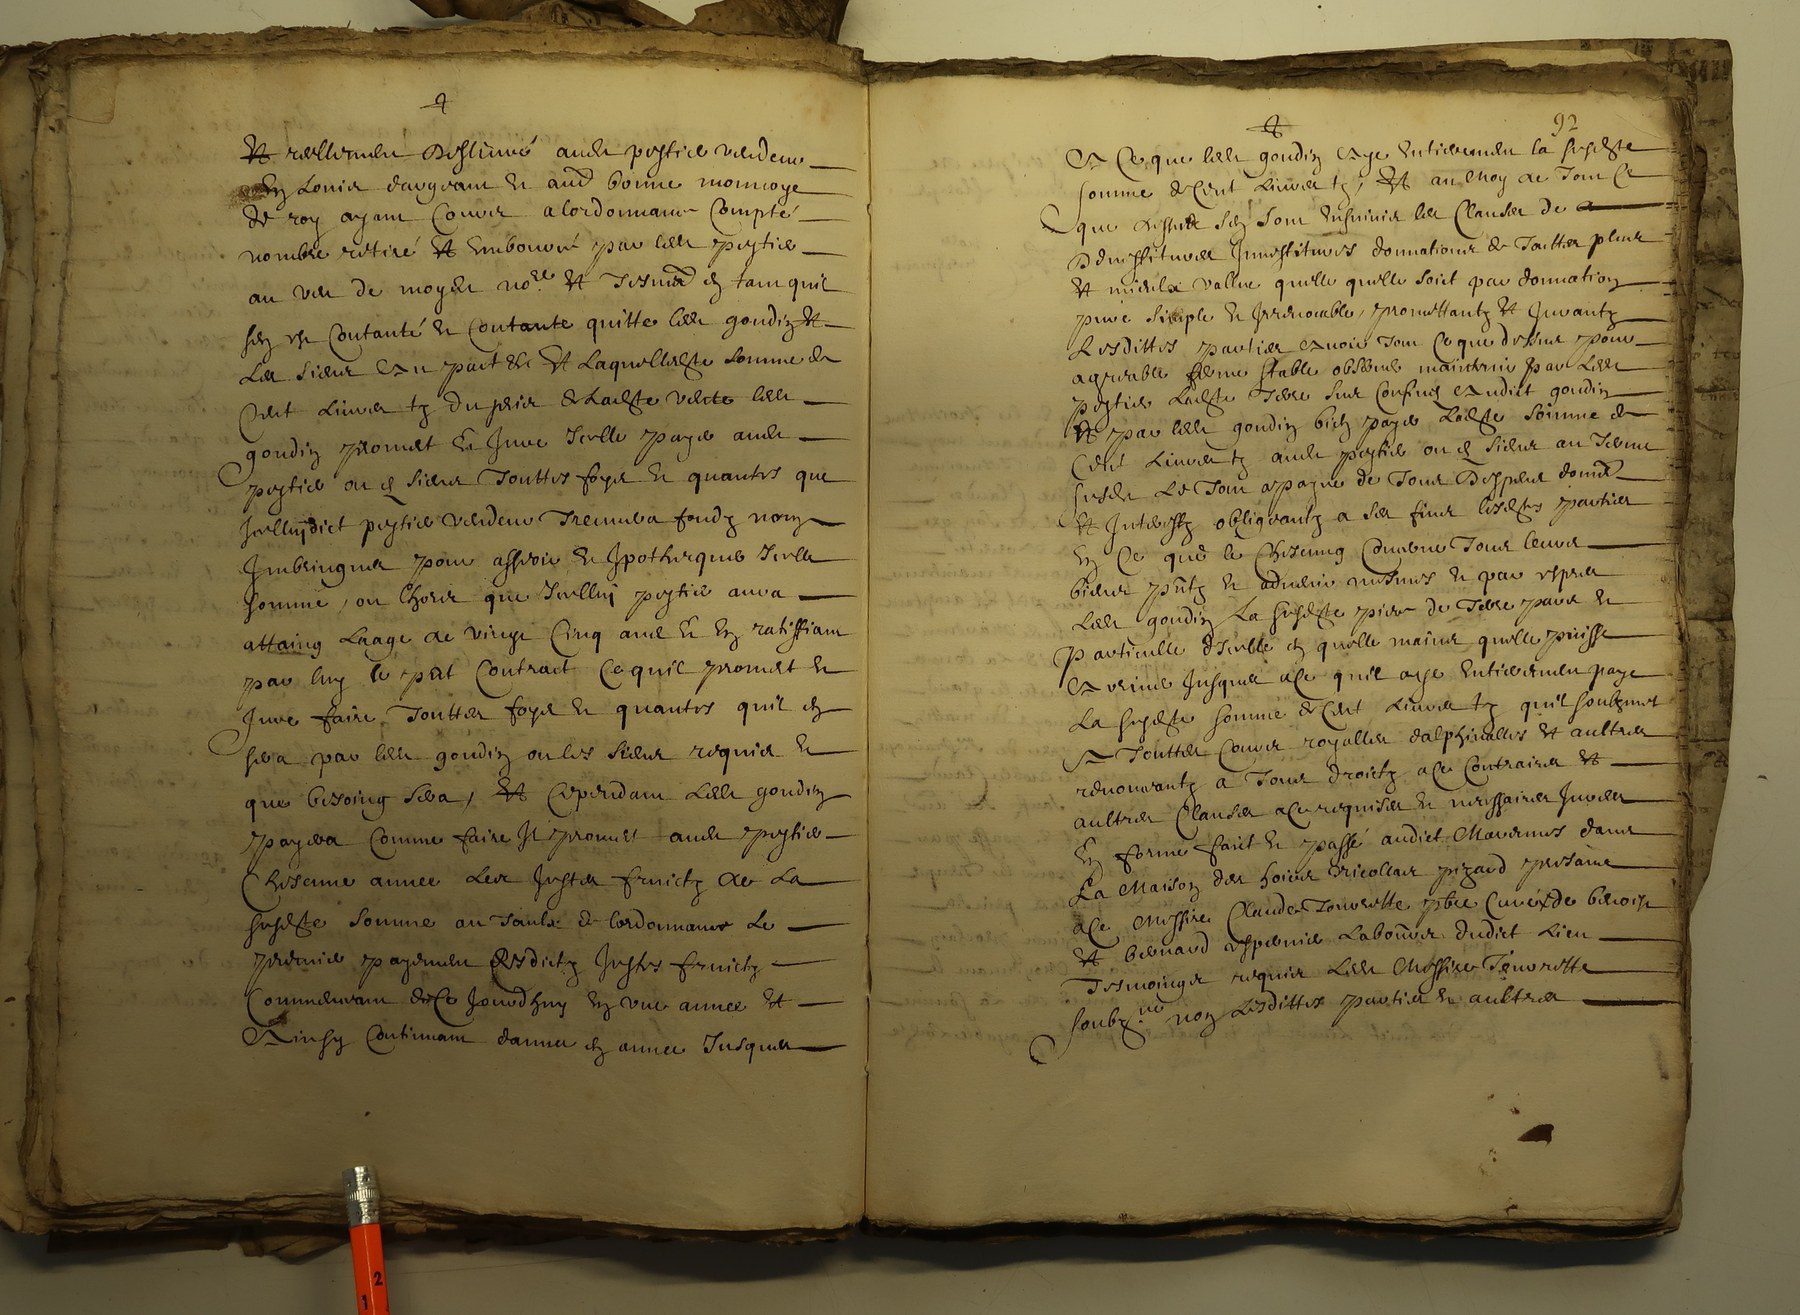 Et reellement deslivré audit peytieu vendeur
En Louis dargeant et aud bonne monnoye
de roy ayant Cours a lordonnance Compté
nombré retiré Et Emboursé par ledt peytieu
au veu de moydt no.re Et Tesmo en tant quil
sen est Contanté et Contante quitte ledt gondin Et
Les siens
Cent Livres tz du prix de ladte vente ledt
gondin promet Et Jure Icelle payer audt
peytieu ou es siens Touttes foys et quantes que
Icelluydict peytieu vendeur Treuvera fondz non
Imbringuer pour assoir et Ipothequer Icelle
somme, ou bien que Icelluy peytieu aura
attaing Laage de vingt Cinq ans Et En ratiffiant
par luy le pnt Contract Ce quil promet et
Jure faire Touttes foys et quantes quil en
sera par ledt gondin ou les siens requis et
que besoing sera, Et Cependant Ledt gondin
payera Comme faire Il promet audt peytieu
Chescune annee Les Justes fruictz de La
susdte somme au Taulx de lordonnance Le
premier payement desdictz Justes fruictz
Commencant de Ce Jourdhuy En une annee Et
Ainsy Continuant dannee en annee Jusques
92
A Ce que ledt gondin aye Entierement la susdte
somme de Cent Livres tz, Et au Moy de Tout Ce
que dessus sen sont Ensuivies les Clauses de
Devestitures Investitures donnations de Touttes plus
Et mieulx vallue quelle quelle soict par donnation
pure simple et Irrevocable, promettantz Et Jurantz
Lesdittes parties avoir Tout Ce que dessus pour
agreable ferme stable observer maintenir par Ledt
peytieu Ladte Terre sur Confins audict gondin
Et par ledt gondin bien payer Ladte somme de
Cent Livres tz audt peytieu ou es siens au Terme
susdt Le Tout a payne de Tous Despens domaes
Et Interestz obligeantz a ses fins lesdtes parties
En Ce que le Chescung Concerne Tous leurs
biens pntz et advenir mesmes et par expres
Ledt gondin La susdte piece de Terre pure et
particulle dicelle en quelle mains quelle puisse
avenir Jusques a Ce quil aye Entierement paye
La susdte somme de Cent Livres tz quil soubzmet
A Touttes Cours royalles dalphinalles Et aultres
renoncantz a Tous droictz a Ce Contraires Et
aultres Clauses a Ce requises et necessaires Jurees
En forme faict et passé audict Marennes dans
La Maison des hoirs nicollas pizard presants
a Ce Messire Claude Touvrette pbre Curé de
Et bernard Laboureur dudict Lieu
Tesmoings requis Ledt Messire Touvrette
soubz.né non Lesdittes parties et aultres